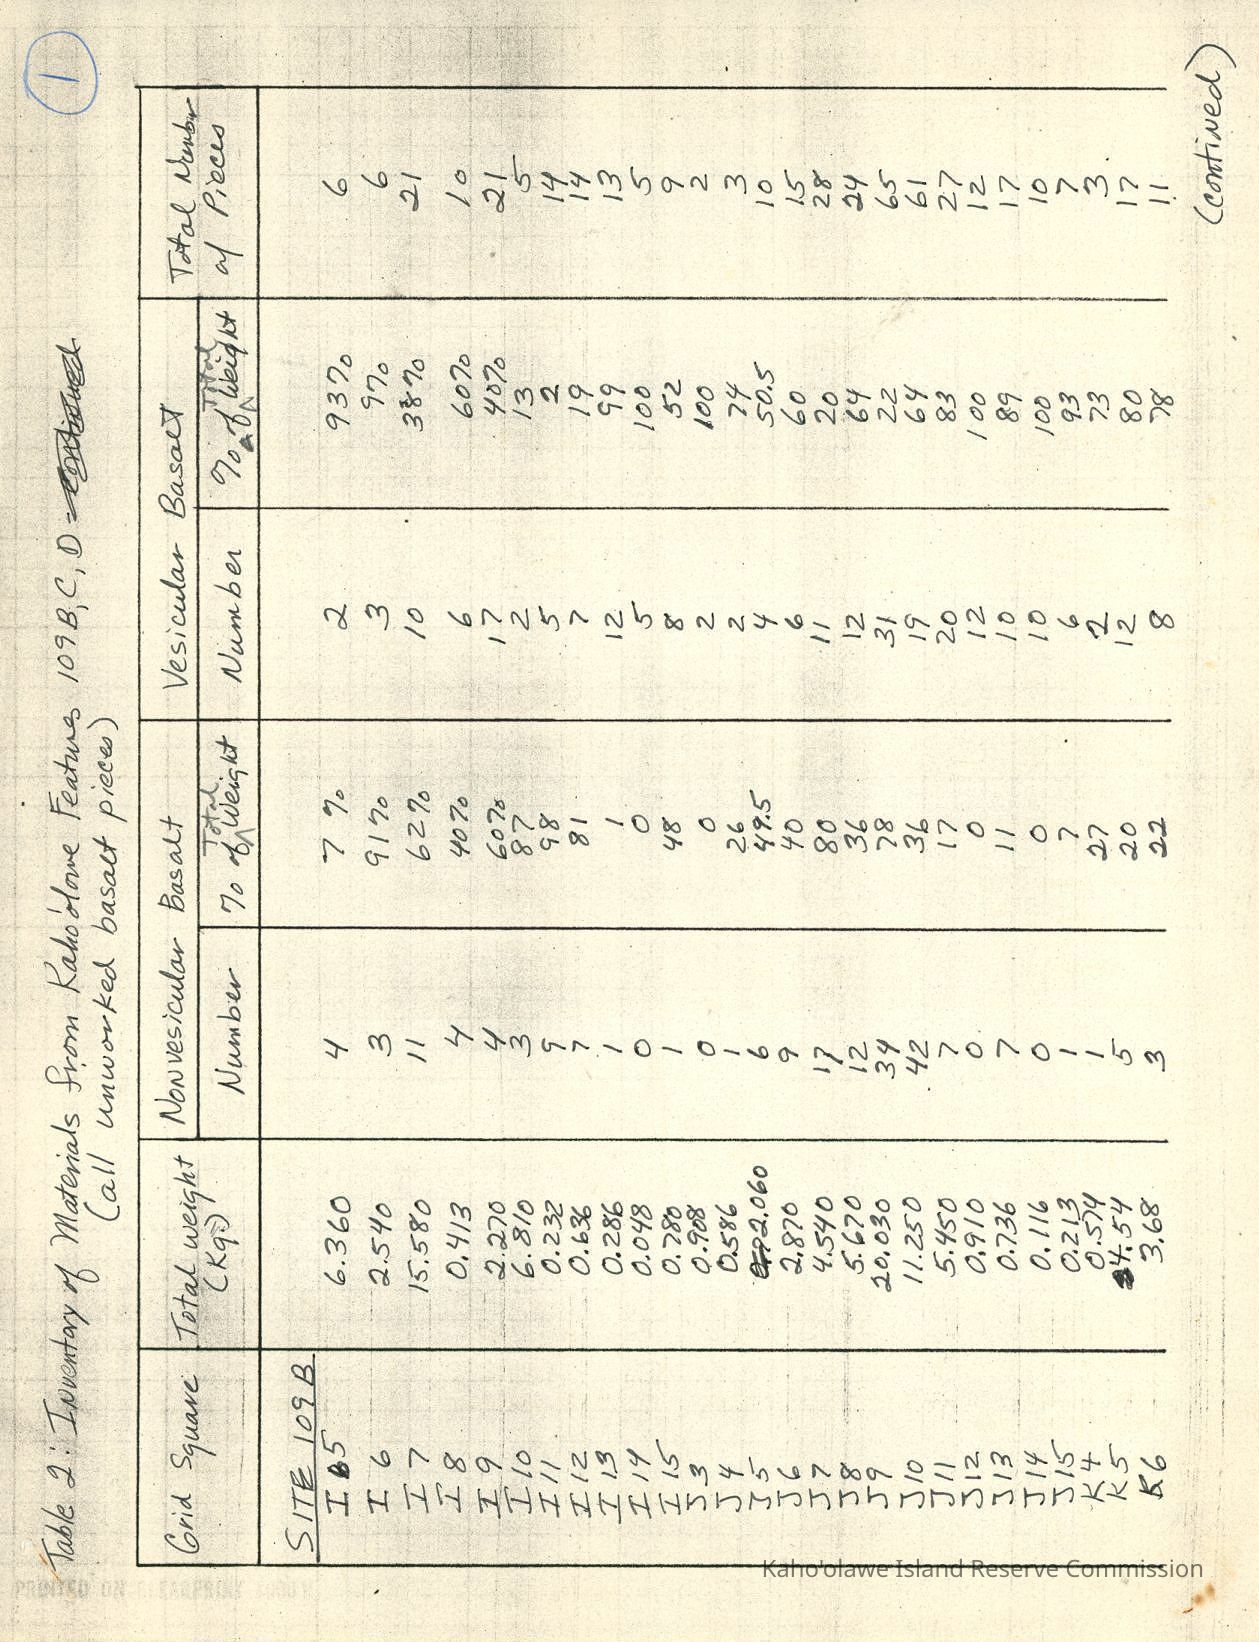 1
Table 2: Inventory of Materials from Kaho'olawe Features 109B, C, D - continued
(all unworked basalt pieces)
Grid Square Total weight (Kg.) Nonvesicular Basalt Vesicular Basalt Total Number of Pieces
Number % of Total Weight Number % of Total Weight
SITE 109B
I 5 6.360 4 7% 2 93% 6
I 6 2.540 3 91% 3 9% 6
I 7 15.580 11 62% 10 38% 21
I 8 0.413 4 40% 6 60% 10
I 9 2.270 4 60% 17 40% 21
I 10 6.810 3 87 2 13 5
I 11 0.232 9 98 5 2 14
I 12 0.636 7 81 7 19 14
I 13 0.286 1 1 12 99 13
I 14 0.048 0 0 5 100 5
I 15 0.780 1 48 8 52 9
J 3 0.908 0 0 2 100 2
J 4 0.586 1 26 2 74 3
J 5 2.060 6 49.5 4 50.5 10
J 6 2.870 9 40 6 60 15
J 7 4.540 17 80 11 20 28
J 8 5.670 12 36 12 64 24
J 9 20.030 34 78 31 22 65
J 10 11.250 42 36 19 64 61
J 11 5.450 7 17 20 83 27
J 12 0.910 0 0 12 100 12
J 13 0.736 7 11 10 89 17
J 14 0.116 0 0 10 100 10
J 15 0.213 1 7 6 93 7
K 4 0.574 1 27 2 73 3
K 5 4.54 5 20 12 80 17
K 6 3.68 3 22 8 78 11
(continued)
Kaho'olawe Island Reserve Commission